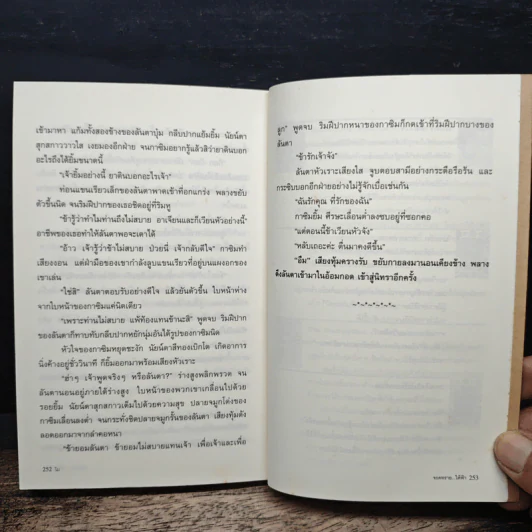 เข้ามาหา แก้มทั้งสองข้างของลันดาบุ๋ม กลีบปากแย้มยิ้ม นัยน์ตา
สุกสกาววาวใส เงยมองอีกฝ่าย จนกาซิมอยากรู้แล้วสิว่ายาดินบอก
อะไรถึงได้ยิ้มขนาดนี้
"เจ้ายิ้มอย่างนี้ ยาดินบอกอะไรเจ้า"
ท่อนแขนเรียวเล็กของลันดาพาดเข้าที่อกแกร่ง พลางขยับ
ตัวขึ้นนิด จนริมฝีปากของเธอชิดอยู่ที่ริมหู
"ข้ารู้ว่าทำไมท่านถึงไม่สบาย อาเจียนและก็เวียนหัวอย่างนี้"
อาชีพของเธอทำให้ลันดาพอจะเดาได้
"อ้าว เจ้ารู้ว่าข้าไม่สบาย ป่วยนี่ เจ้ากลับดีใจ" กาซิมทำ
เสียงงอน แต่ฝ่ามือของเขากำลังลูบแขนเรียวที่อยู่บนแผงอกของ
เขาเล่น
"ใช่สิ" ลันดาตอบรับอย่างดีใจ แล้วยันตัวขึ้น ใบหน้าห่าง
จากใบหน้าของกาซิมแค่นิดเดียว
"เพราะท่านไม่สบาย แพ้ท้องแทนข้านะสิ" พูดจบ ริมฝีปาก
ของลันดาก็ทาบทับกลีบปากหยักนุ่มอันได้รูปของกาซิมนิด
หัวใจของกาซิมหยุดชะงัก นัยน์ตาสีทองเบิกโต เกิดอาการ
นิ่งค้างอยู่ชั่ววินาที ก็ยิ้มออกมาพร้อมเสียงหัวเราะ
"ฮ่าๆ เจ้าพูดจริงๆ หรือลันดา?" ร่างสูงพลิกพรวด จน
ลันดานอนอยู่ภายใต้ร่างสูง ใบหน้าของพวกเขาเกลื่อนไปด้วย
รอยยิ้ม นัยน์ตาสุกสกาวเต็มไปด้วยความสุข ปลายจมูกโด่งของ
กาซิมเลื่อนลงต่ำ จนกระทั่งชิดปลายจมูกรั้นของลันดา เสียงทุ้มดัง
ลอดออกมาจากลำคอหนา
"ข้ายอมลันดา ข้ายอมไม่สบายแทนเจ้า เพื่อเจ้าและเพื่อ
252
ลูก" พูดจบ ริมฝีปากหนาของกาซิมก็กดเข้าที่ริมฝีปากบางของ
ลันดา
"ข้ารักเจ้าจัง"
ลันดาหัวเราะเสียงใส จูบตอบสามีอย่างกระดี๊อรือรัน และ
กระซิบบอกอีกฝ่ายอย่างไม่รู้จักเบื่อเช่นกัน
"ฉันรักคุณ ที่รักของฉัน"
กาซิมยิ้ม ศีรษะเลื่อนต่ำลงซบอยู่ที่ซอกคอ
"แต่ตอนนี้ข้าเวียนหัวจัง"
"หลับเถอะค่ะ ตื่นมาคงดีขึ้น"
"อืม" เสียงทุ้มครางรับ ขยับกายลงมานอนเคียงข้าง พลาง
ดึงลันดาเข้ามาในอ้อมกอด เข้าสู่นิทราอีกครั้ง
253